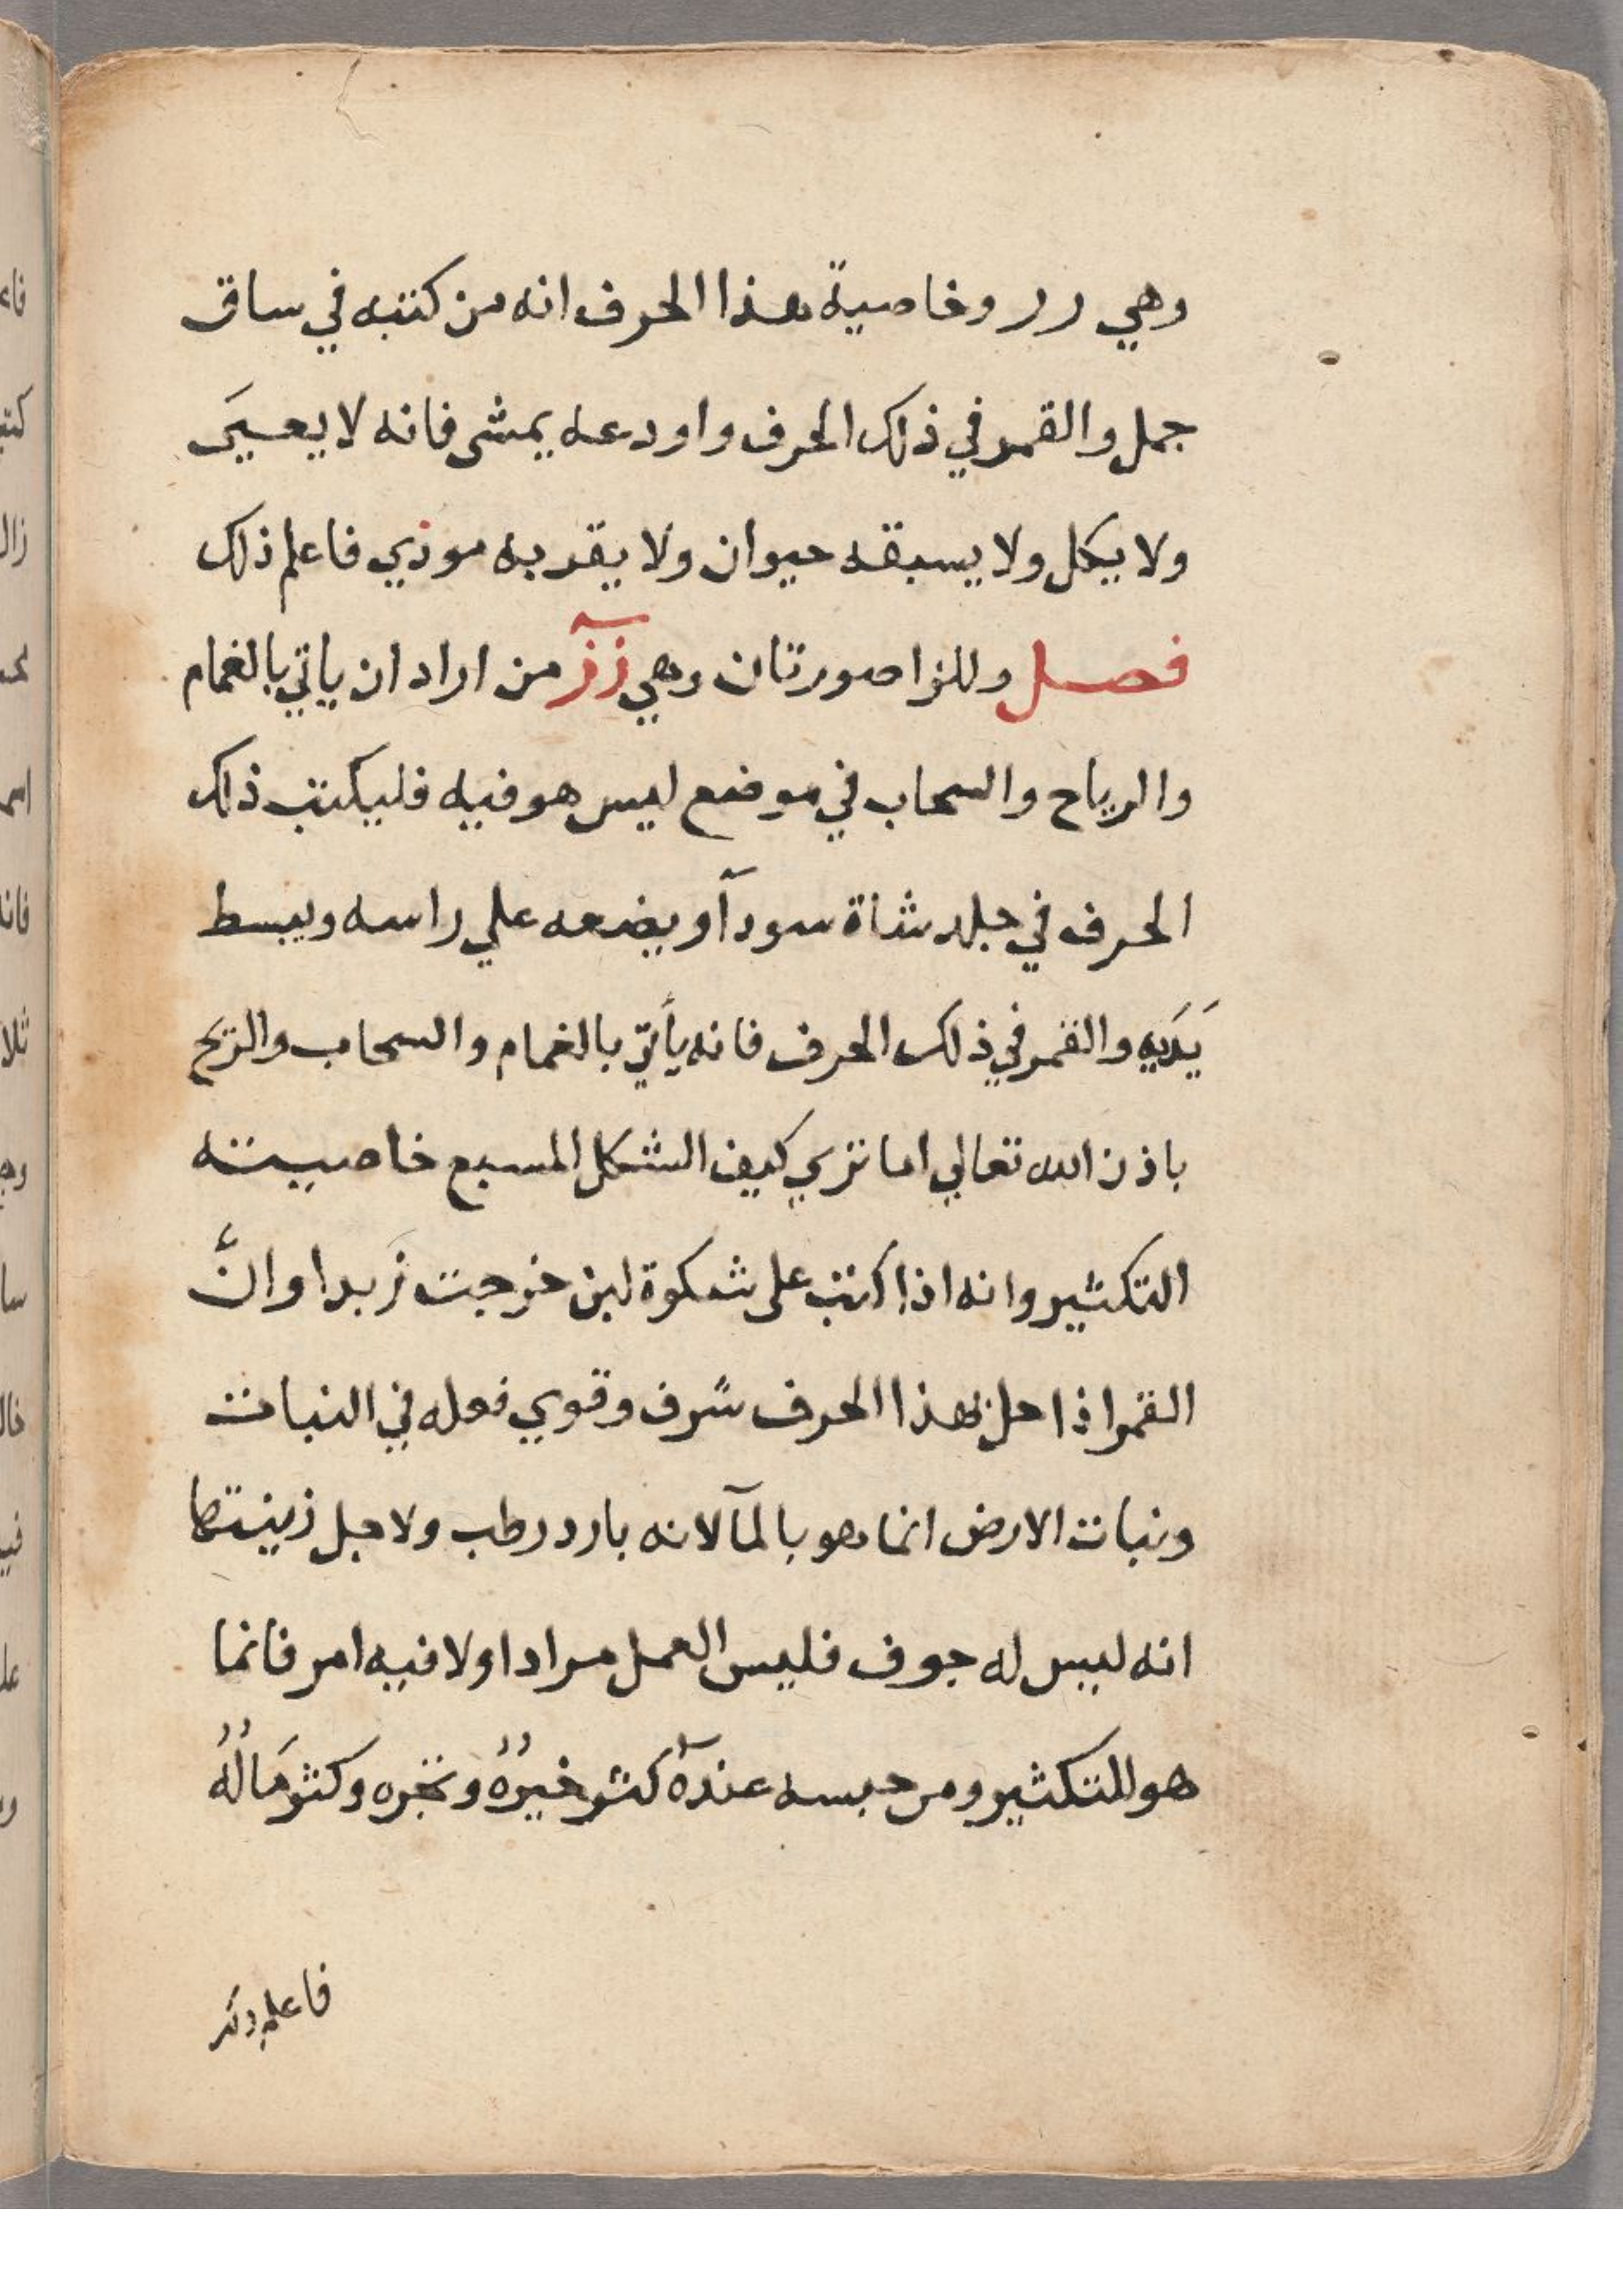 وهي رر وخاصية هذا الحرف انه من كتبه في ساق
جمل والقمر في ذلك الحرف واودعه يمشى فانه لا يعيىَ
ولا يكل ولا يسبقه حيوان ولا يقربه موذي فاعلم ذلك
فصل وللزا صورتان وهي زز من اراد ان ياتي بالغمام
والرياح والسحاب في موضع ليس هو فيه فليكتب ذلك
الحرف في جلد شاة سودآ ويضعه علي راسه ويبسط
يَدَيه والقمر في ذلك الحرف فانه يأتي بالغمام والسحاب والريح
باذن الله تعالي اما تري كيف الشكل المسبع خاصيته
التكثير وانه اذا كتب على شكوة لبن خرجت زبدا وانَّ
القمر اذا حل بهذا الحرف شرف وقوي فعله في النبات
ونبات الارض انما هو بالمآ لانه بارد رطب ولاجل زينتها
انه ليس له جوف فليس العمل مرادا ولا فيه امر فانما
هو للتكثير ومن حبسه عنده كثر خيرُهُ وتجره وكثر مَالُهُ
فاعلم